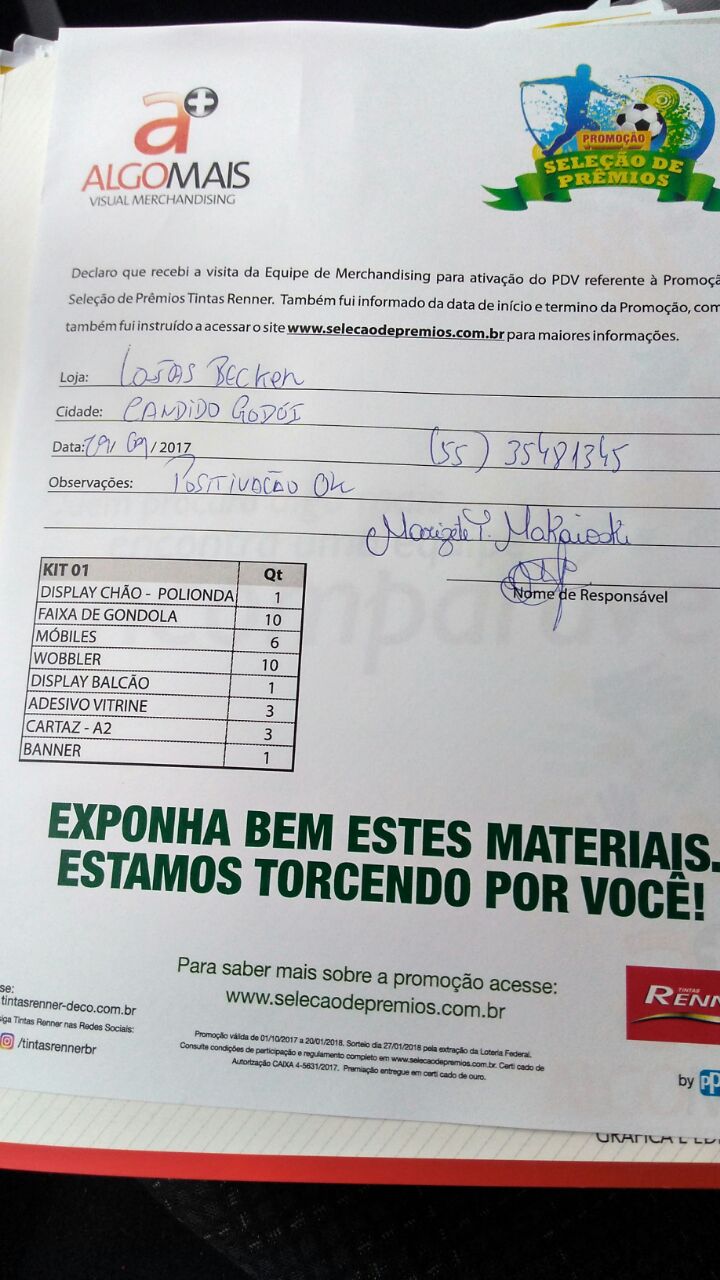 a+
ALGOMAIS
VISUAL MERCHANDISING
PROMOÇÃO
SELEÇÃO DE
PRÊMIOS
Declaro que recebi a visita da Equipe de Merchandising para ativação do PDV referente à Promoçã
Seleção de Prêmios Tintas Renner. Também fui informado da data de início e termino da Promoção, com
também fui instruído a acessar o site www.selecaodepremios.com.br para maiores informações.
Loja: Lojas Becker
Cidade: CANDIDO GODÓI
Data: 19/09/2017 (55) 35481345
Observações: POSITIVAÇÃO OK
Marizete T.
Nome de Responsável
KIT 01 Qt
DISPLAY CHÃO - POLIONDA 1
FAIXA DE GONDOLA 10
MÓBILES 6
WOBBLER 10
DISPLAY BALCÃO 1
ADESIVO VITRINE 3
CARTAZ - A2 3
BANNER 1
EXPONHA BEM ESTES MATERIAIS.
ESTAMOS TORCENDO POR VOCÊ!
Para saber mais sobre a promoção acesse:
www.selecaodepremios.com.br
se:
tintasrenner-deco.com.br
iga Tintas Renner nas Redes Sociais:
/tintasrennerbr
Promoção válida de 01/10/2017 a 20/01/2018. Sorteio dia 27/01/2018 pela extração da Loteria Federal.
Consulte condições de participação e regulamento completo em www.selecaodepremios.com.br. Certi cado de
Autorização CAIXA 4-5631/2017. Premiação entregue em certi cado de ouro.
TINTAS
RENN
by pp
GRÁFICA E ED